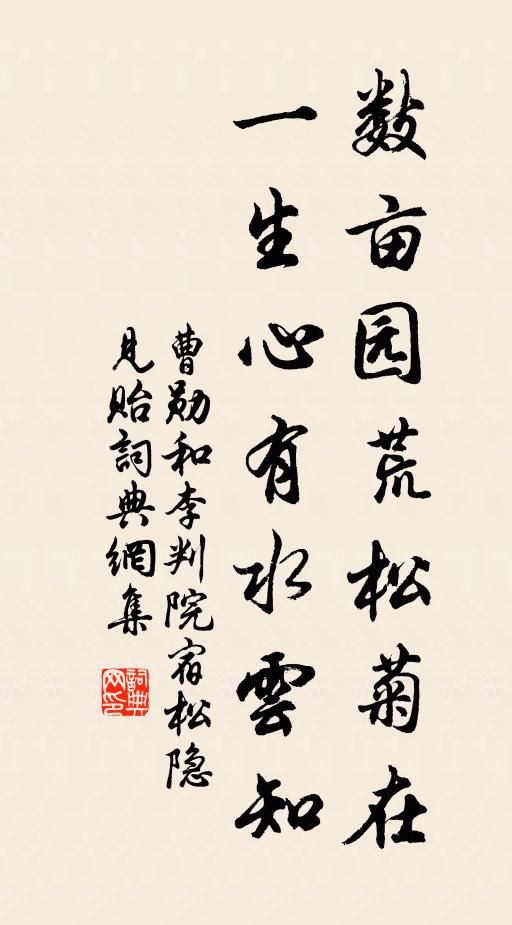 数亩园荒松菊在
一生心有水雲知
曹勋和李判院宿松隐
見貽詞典網集
詞典网印